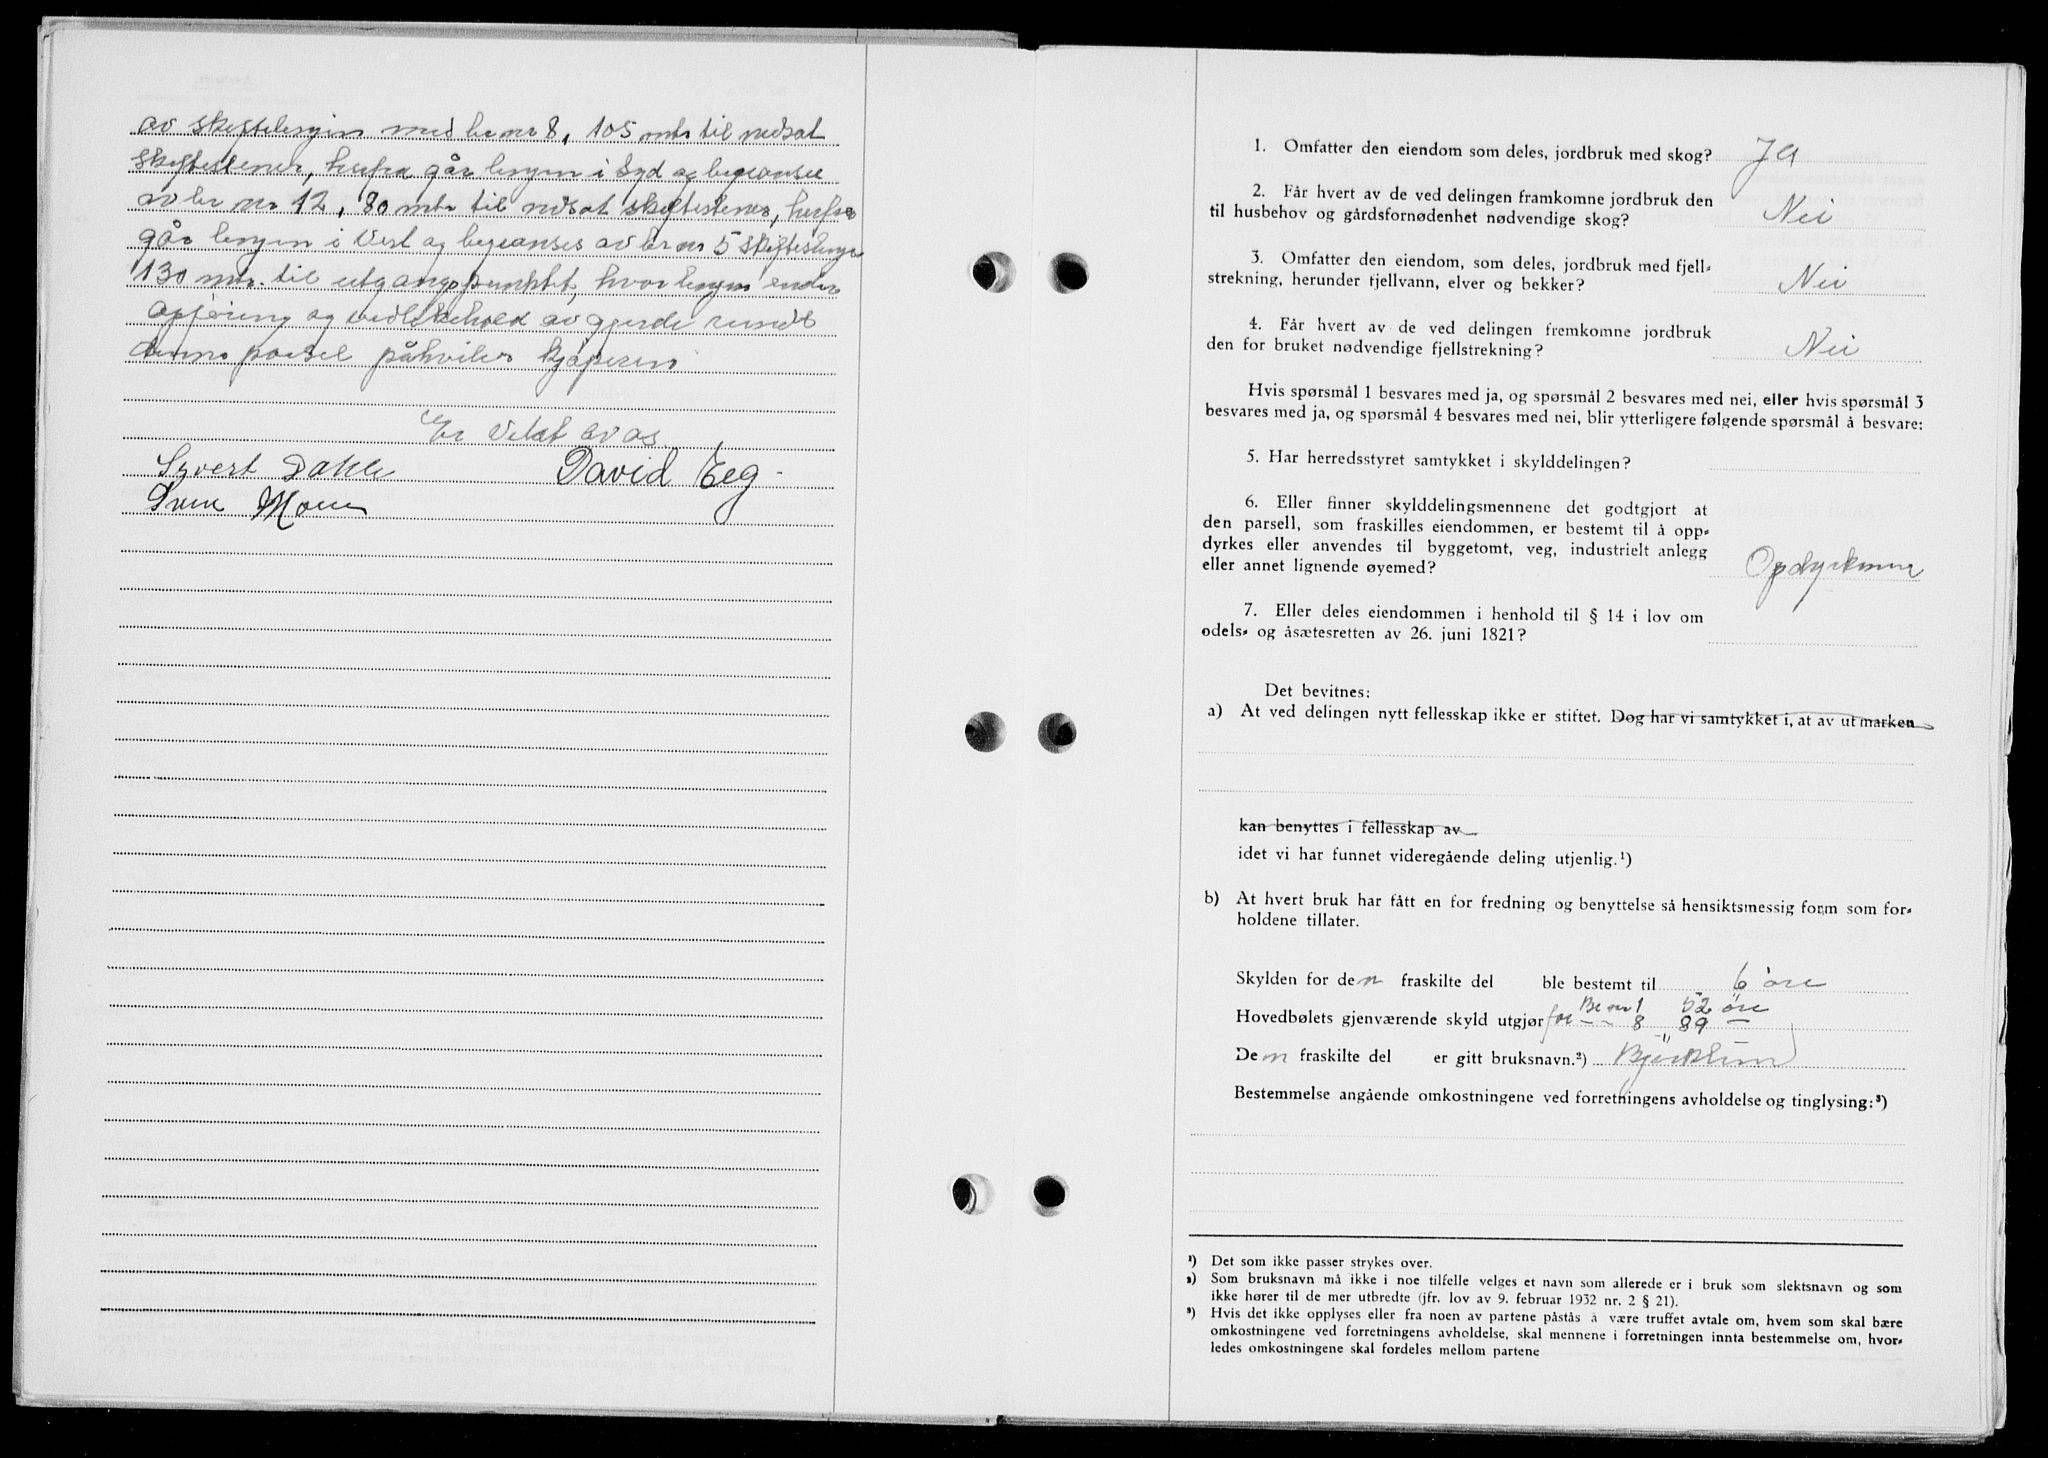 av skiftelinjen med br nr 8, 105 mtr til nedsat
skiftestener, herfra går linjen i Syd og begranses
av br nr 12, 80 mtr til nedsat skiftestener, herfra
går linjen i Vest og begranses av br nr 5 skifteslinje
130 mtr. til utgangspunktet, hvor linjen ender
opføring og vedlikehold av gjerde rundt
denne parsel påhviler kjøperen
Er Vitat av os
Syvert Dahle David Eeg
Sven Moen
1. Omfatter den eiendom som deles, jordbruk med skog? Ja
2. Får hvert av de ved delingen framkomne jordbruk den
til husbehov og gårdsfornødenhet nødvendige skog? Nei
3. Omfatter den eiendom, som deles, jordbruk med fjell-
strekning, herunder fjellvann, elver og bekker? Nei
4. Får hvert av de ved delingen fremkomne jordbruk
den for bruket nødvendige fjellstrekning? Nei
Hvis spørsmål 1 besvares med ja, og spørsmål 2 besvares med nei, eller hvis spørsmål 3
besvares med ja, og spørsmål 4 besvares med nei, blir ytterligere følgende spørsmål å besvare:
5. Har herredsstyret samtykket i skylddelingen?
6. Eller finner skylddelingsmennene det godtgjort at
den parsell, som fraskilles eiendommen, er bestemt til å opp-
dyrkes eller anvendes til byggetomt, veg, industrielt anlegg
eller annet lignende øyemed? Opdyrkning
7. Eller deles eiendommen i henhold til § 14 i lov om
odels- og åsætesretten av 26. juni 1821?
Det bevitnes:
a) At ved delingen nytt fellesskap ikke er stiftet. Dog har vi samtykket i, at av utmarken
kan benyttes i fellesskap av
idet vi har funnet videregående deling utjenlig.¹)
b) At hvert bruk har fått en for fredning og benyttelse så hensiktsmessig form som for-
holdene tillater.
Skylden for den fraskilte del ble bestemt til 6 øre
Hovedbølets gjenværende skyld utgjør for Br nr 1 52 øre
— — 8 „ 89 —
Den fraskilte del er gitt bruksnavn.²) Bjørklund
Bestemmelse angående omkostningene ved forretningens avholdelse og tinglysing:³)
¹) Det som ikke passer strykes over.
²) Som bruksnavn må ikke i noe tilfelle velges et navn som allerede er i bruk som slektsnavn og som
ikke hører til de mer utbredte (jfr. lov av 9. februar 1932 nr. 2 § 21).
³) Hvis det ikke opplyses eller fra noen av partene påstås å være truffet avtale om, hvem som skal bære
omkostningene ved forretningens avholdelse, skal mennene i forretningen innta bestemmelse om, hvor-
ledes omkostningene skal fordeles mellom partene